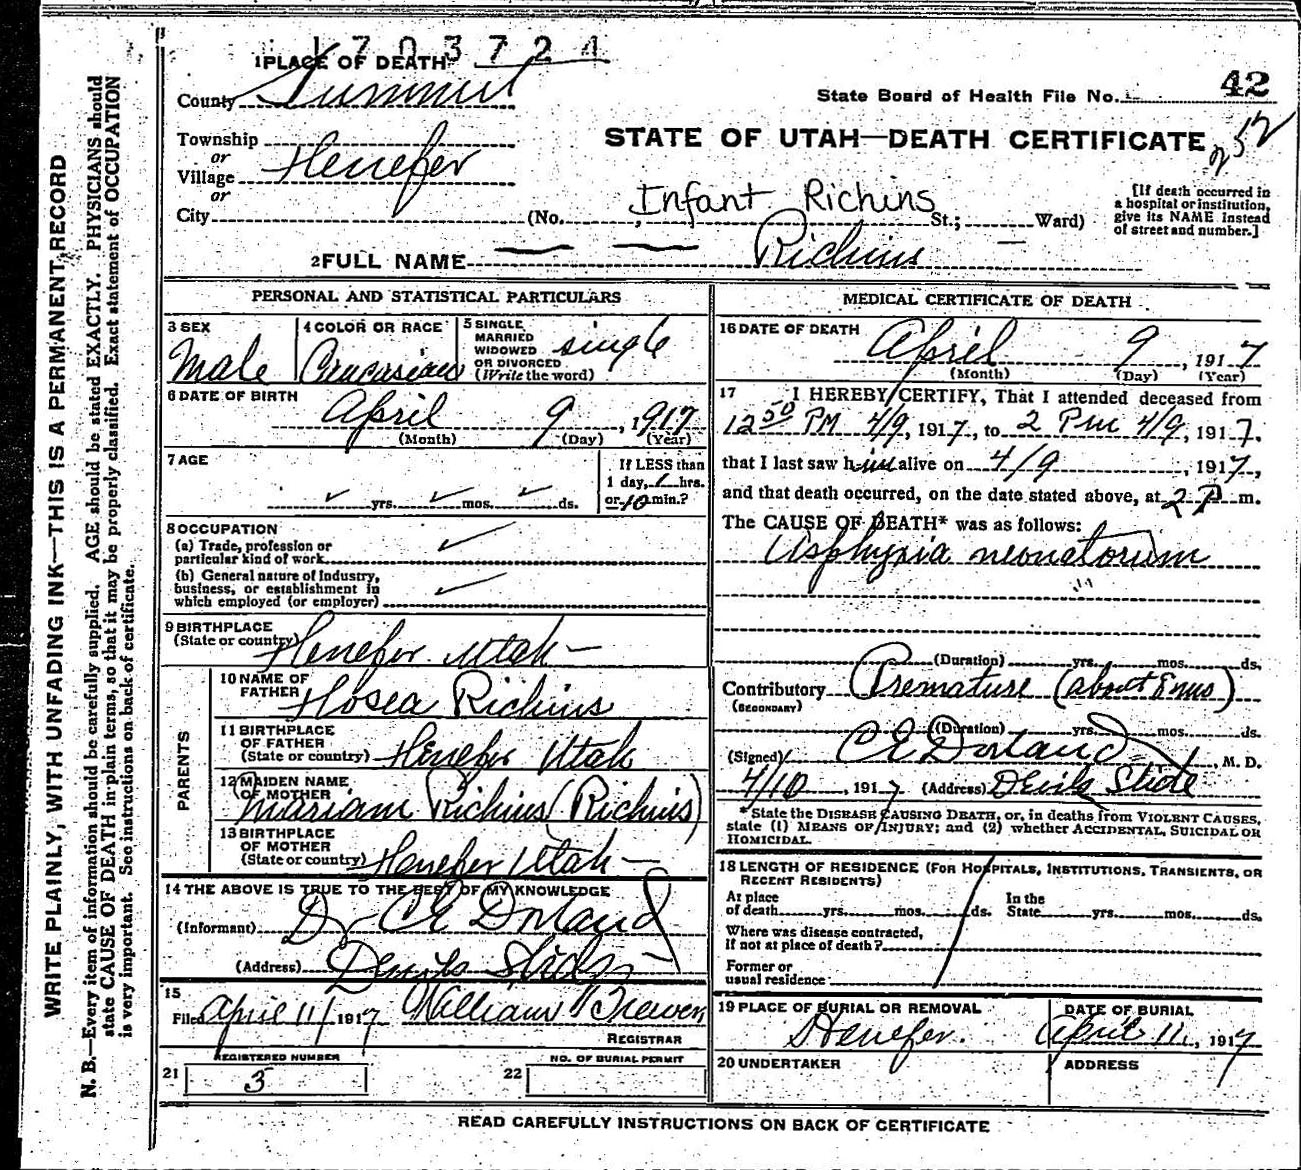 1703724
1 PLACE OF DEATH
County Summit
State Board of Health File No. 42
Township
or
Village Henefer
or
STATE OF UTAH—DEATH CERTIFICATE
252
City (No. , Infant Richins St.; Ward)
[If death occurred in
a hospital or institution,
give its NAME instead
of street and number.]
2 FULL NAME — — Richins
PERSONAL AND STATISTICAL PARTICULARS
3 SEX
Male
4 COLOR OR RACE
Caucasian
5 SINGLE
MARRIED
WIDOWED
OR DIVORCED
(Write the word)
single
6 DATE OF BIRTH
April 9, 1917
(Month) (Day) (Year)
7 AGE
✓ yrs. ✓ mos. ✓ ds.
If LESS than
1 day, 1 hrs.
or 10 min.?
8 OCCUPATION
(a) Trade, profession or
particular kind of work ✓
(b) General nature of industry,
business, or establishment in
which employed (or employer) ✓
9 BIRTHPLACE
(State or country) Henefer Utah —
PARENTS
10 NAME OF
FATHER Hosea Richins
11 BIRTHPLACE
OF FATHER
(State or country) Henefer Utah
12 MAIDEN NAME
OF MOTHER
Mariam Richins (Richins)
13 BIRTHPLACE
OF MOTHER
(State or country) Henefer Utah —
14 THE ABOVE IS TRUE TO THE BEST OF MY KNOWLEDGE
(Informant) Dr C E Dorland
(Address) Devils Slide
15
Filed April 11, 1917 William
REGISTRAR
21 REGISTERED NUMBER
3
22 NO. OF BURIAL PERMIT
MEDICAL CERTIFICATE OF DEATH
16 DATE OF DEATH
April 9, 1917
(Month) (Day) (Year)
17 I HEREBY CERTIFY, That I attended deceased from
12 50 PM 4/9, 1917, to 2 Pm 4/9, 1917.
that I last saw him alive on 4/9, 1917,
and that death occurred, on the date stated above, at 2 P m.
The CAUSE OF DEATH* was as follows:
Asphyxia neonatorum
(Duration) yrs. mos. ds.
Contributory Premature (about 8 mos)
(SECONDARY)
(Duration) yrs. mos. ds.
(Signed) C E Dorland, M. D.
4/10, 1917 (Address) Devils Slide
*State the DISEASE CAUSING DEATH, or, in deaths from VIOLENT CAUSES,
state (1) MEANS OF INJURY; and (2) whether ACCIDENTAL, SUICIDAL OR
HOMICIDAL.
18 LENGTH OF RESIDENCE (FOR HOSPITALS, INSTITUTIONS, TRANSIENTS, OR
RECENT RESIDENTS)
At place
of death yrs. mos. ds.
In the
State yrs. mos. ds.
Where was disease contracted,
if not at place of death?
Former or
usual residence
19 PLACE OF BURIAL OR REMOVAL
Henefer.
DATE OF BURIAL
April 11, 1917
20 UNDERTAKER
ADDRESS
READ CAREFULLY INSTRUCTIONS ON BACK OF CERTIFICATE
WRITE PLAINLY, WITH UNFADING INK—THIS IS A PERMANENT RECORD
N. B.—Every item of information should be carefully supplied. AGE should be stated EXACTLY. PHYSICIANS should
state CAUSE OF DEATH in plain terms, so that it may be properly classified. Exact statement of OCCUPATION
is very important. See instructions on back of certificate.